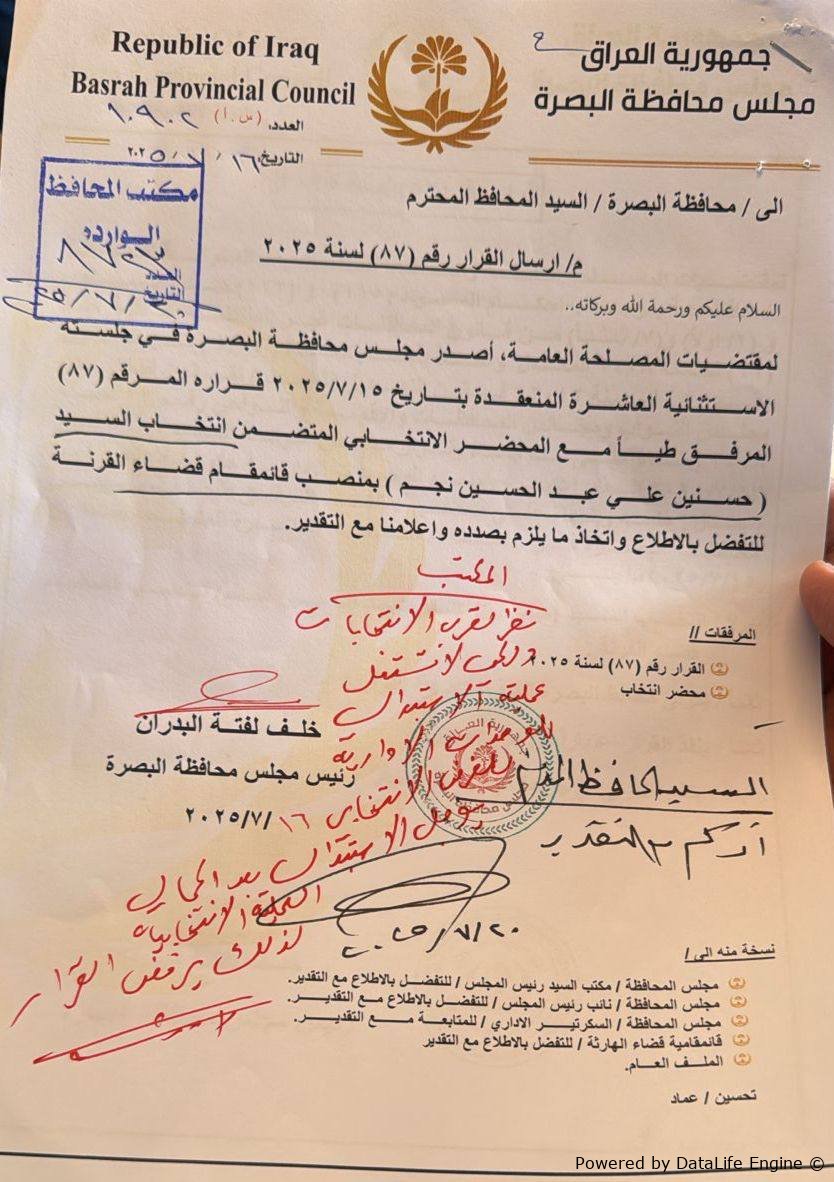 Republic of Iraq
Basrah Provincial Council
جمهورية العراق
مجلس محافظة البصرة
العدد: (س.أ) ١٠٩٠٢
التاريخ: ١٦ / ٧ / ٢٠٢٥
مكتب المحافظ
الوارده
العدد
التاريخ
الى / محافظة البصرة / السيد المحافظ المحترم
م/ ارسال القرار رقم (٨٧) لسنة ٢٠٢٥
السلام عليكم ورحمة الله وبركاته..
لمقتضيات المصلحة العامة، أصدر مجلس محافظة البصرة في جلسته
الاستثنائية العاشرة المنعقدة بتاريخ ٢٠٢٥/٧/١٥ قراره المرقم (٨٧)
المرفق طياً مع المحضر الانتخابي المتضمن انتخاب السيد
( حسنين علي عبد الحسين نجم ) بمنصب قائمقام قضاء القرنة
للتفضل بالاطلاع واتخاذ ما يلزم بصدده واعلامنا مع التقدير.
المكتب
نظر لقرب الانتخابات
ولكي لا تستغل
عملية الاستبدال
الوحدات الادارية
للغرض الانتخابي
يؤجل الاستبدال بعد اكمال
العملية الانتخابية
لذلك يرفض القرار
المرفقات //
القرار رقم (٨٧) لسنة ٢٠٢٥
محضر انتخاب
خلف لفتة البدران
رئيس مجلس محافظة البصرة
١٦ /٢٠٢٥/٧
السيد المحافظ المحترم
٧/٢٠
نسخة منه الى /
مجلس المحافظة / مكتب السيد رئيس المجلس / للتفضل بالاطلاع مع التقدير.
مجلس المحافظة / نائب رئيس المجلس / للتفضل بالاطلاع مع التقدير.
مجلس المحافظة / السكرتير الاداري / للمتابعة مع التقدير.
قائمقامية قضاء الهارثة / للتفضل بالاطلاع مع التقدير
الملف العام.
تحسين / عماد
Powered by DataLife Engine ©